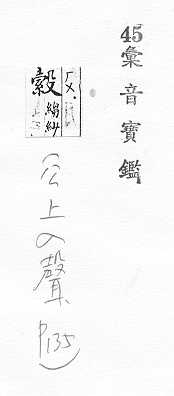 45
彙音寶鑑
ㄏㄨ.
縠
縐紗
公上入聲
P135